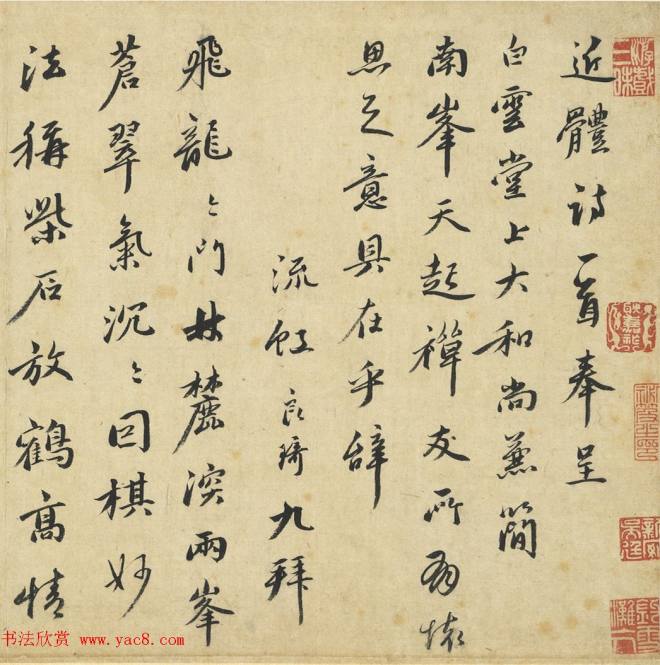 近體詩一首奉呈
白雲堂上大和尚蕪簡
南峯天起禪友所有懷
思之意具在乎辭
流虹良琦九拜
飛龍〻門林麓深兩峯
蒼翠氣沉〻囙棋妙
法稱柴石放鶴高情
书法欣赏 www.yac8.com